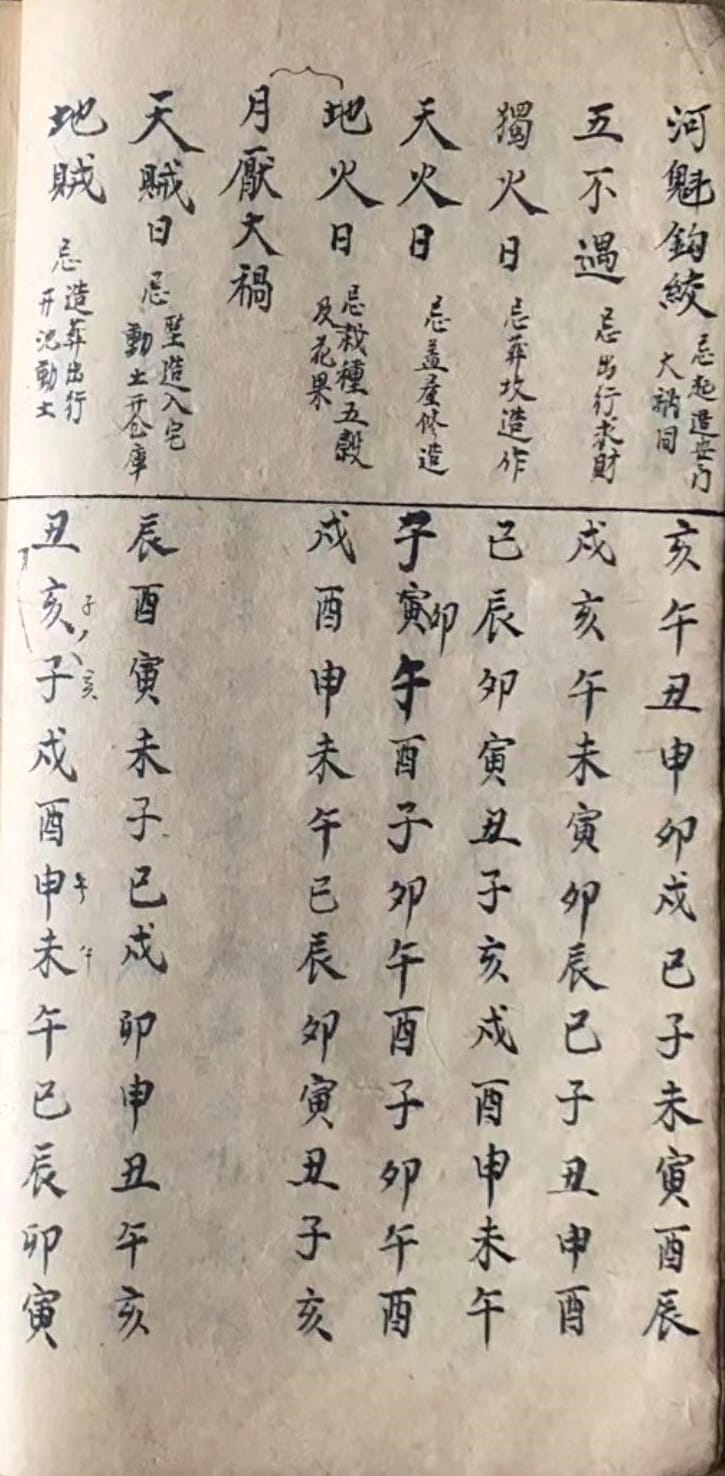 河魁鈎絞
忌起造安门
大間
亥午丑申卯戌巳子未寅酉辰
五不遇
忌出行求財
戌亥午未寅卯辰巳子丑申酉
獨火日
忌葬坟造作
巳辰卯寅丑子亥戌酉申未午
天火日
忌盖屋修造
子寅午酉子卯午酉子卯午酉
卯
地火日
忌栽種五穀
及花果
戌酉申未午巳辰卯寅丑子亥
月厭大禍
天賊日
忌竪造入宅
動土开仓庫
辰酉寅未子巳戌卯申丑午亥
地賊
忌造葬出行
开池動土
丑亥子戌酉申未午巳辰卯寅
子
亥
午
午